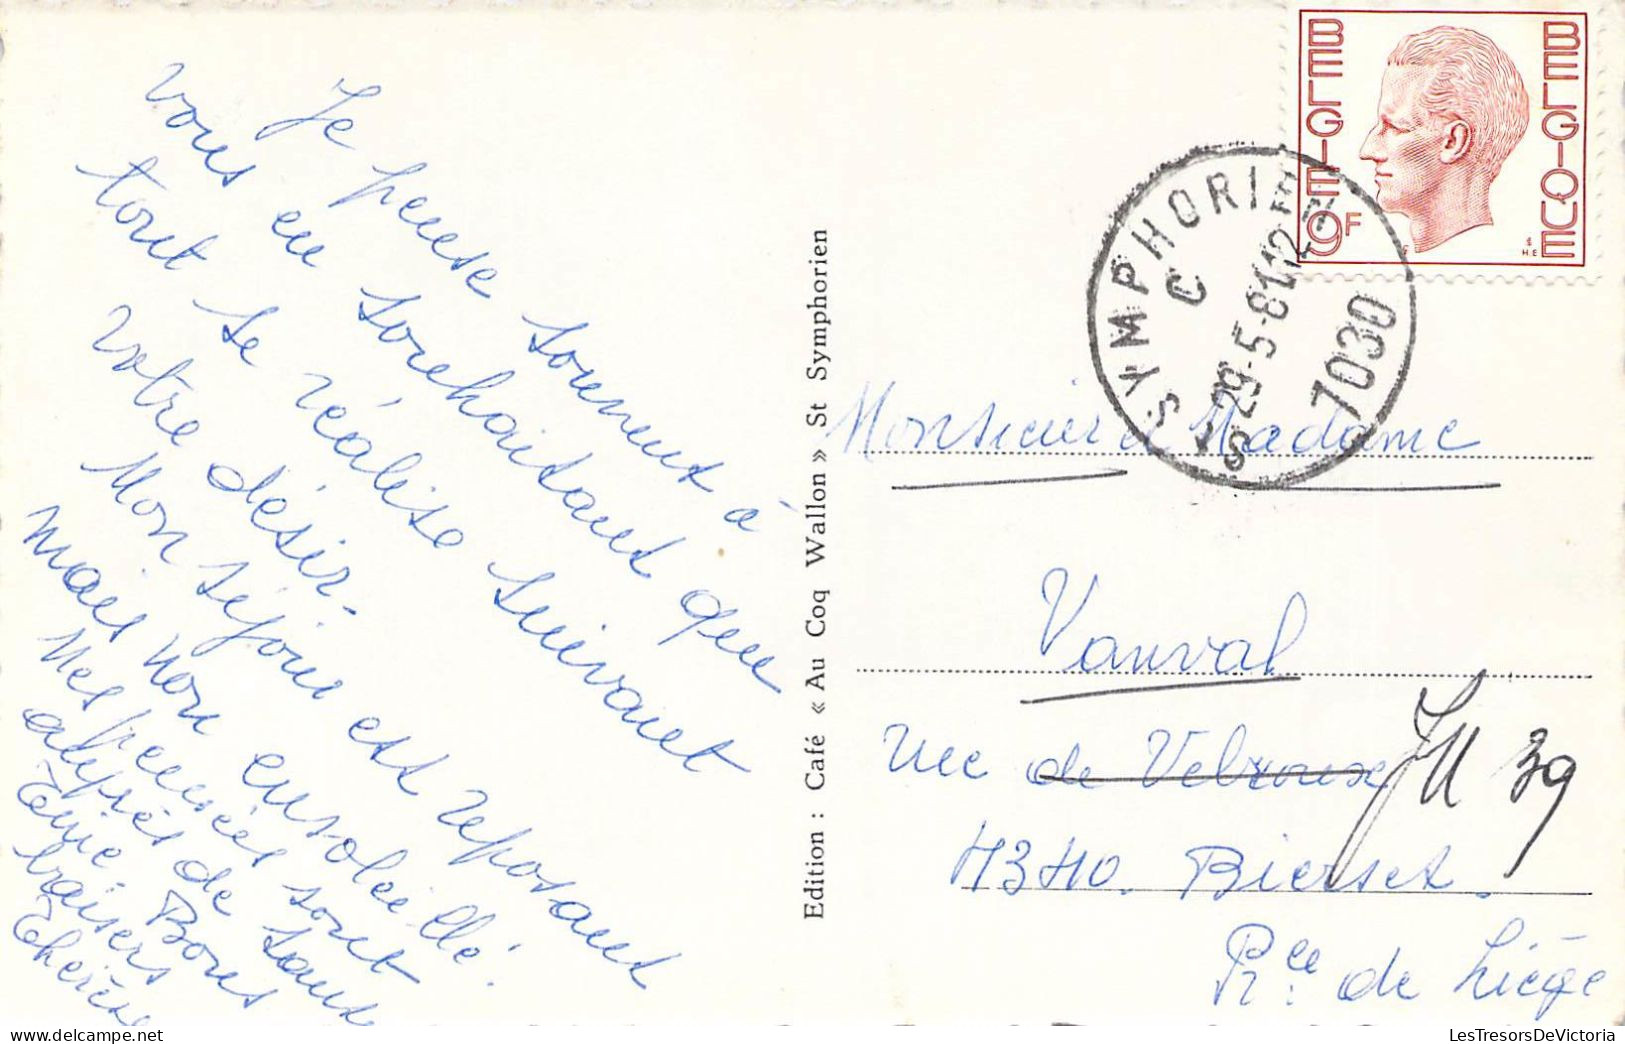 Je pense souvent à
vous en souhaitant que
tout se réalise suivant
votre désir.
Mon séjour est reposant
mais non ensoleillé.
Mes pensées sont
auprès de
Bons
baisers
Thérèse
Edition : Café « Au Coq Wallon » St Symphorien
BELGIE BELGIQUE
9F
ST SYMPHORIEN
C
29-5-81 12
7030
Monsieur & Madame
Vanval
rue de Velroux JM 39
4340. Bierset.
Pce de Liège
LesTresorsDeVictoria